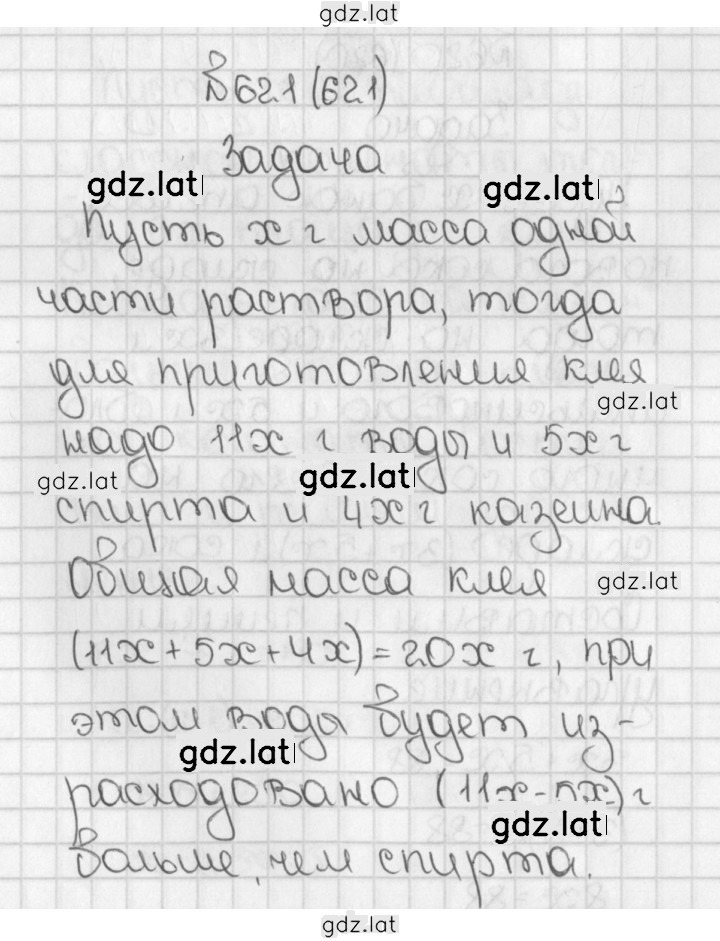 gdz.lat
№621 (621)
Задача
gdz.lat gdz.lat
Пусть x г масса одной
части раствора, тогда
для приготовления клея
gdz.lat
надо 11x г воды и 5x г
gdz.lat gdz.lat
спирта и 4x г казеина.
Общая масса клея
gdz.lat
(11x + 5x + 4x) = 20x г, при
этом воды будет из-
gdz.lat
расходовано (11x - 5x) г
gdz.lat
больше, чем спирта.
gdz.lat